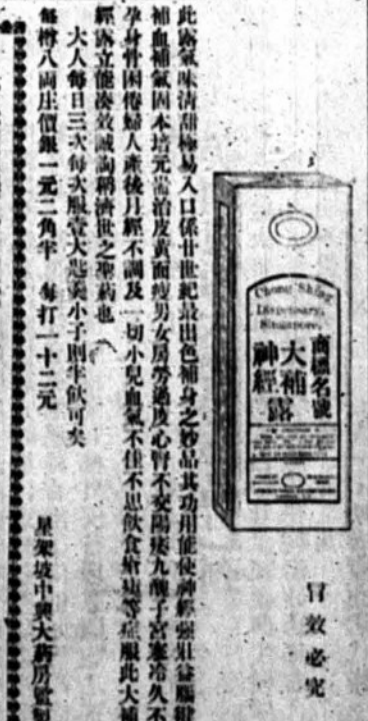 商標名號
大補
神經
露
Chong Shing
Dispensary,
Singapore.
冒效必究
此露氣味清甜極易入口係廿世紀最出色補身之妙品其功用能使神經強壯益腦
補血補氣固本培元耑治皮黃面瘦男女房勞過度心腎不交陽痿九醜子宮寒冷久不
孕身骨困倦婦人產後月經不調及一切小兒血氣不佳不思飲食等症服此大補
經露立能奏效誠濟世之聖藥也
大人每日三次每次服壹大匙羹小子則半飲可矣
每樽八兩庄價銀一元二角半 每打一十二元
星架坡中興大藥房